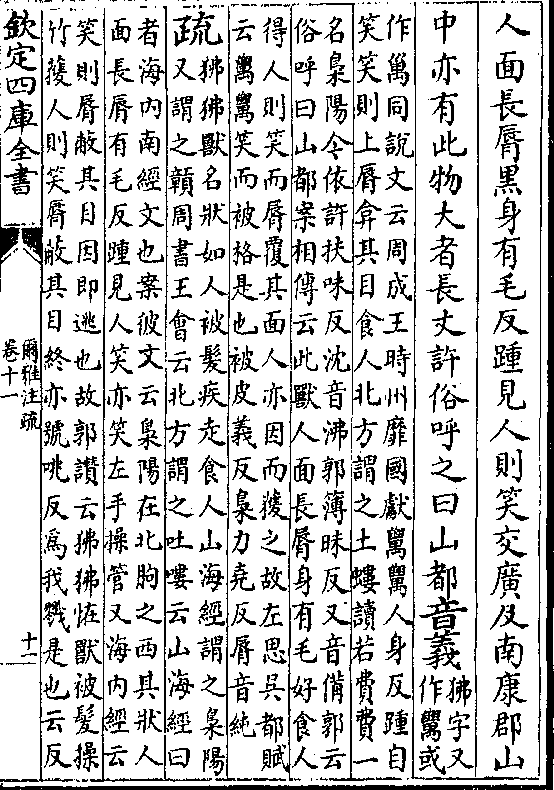 人面長脣黑身有毛反踵見人則笑交廣及南康郡山
中亦有此物大者長丈許俗呼之曰山都音義狒字又
作𥝋或
作萬同說文云周成王時州靡國獻𥝋𥝋人身反踵自
笑笑則上脣弇其目食人北方謂之土螻讀若費費一
名梟陽今依許扶味反沈音沸郭簿昧反又音備郭云
俗呼曰山都案相傳云此獸人面長脣身有毛好食人
得人則笑而脣覆其面人亦因而獲之故左思吳都賦
云𥝋𥝋笑而被格是也被皮義反梟力堯反脣音純
疏狒狒獸名狀如人被髮疾走食人山海經謂之梟陽
又謂之贑周書王會云北方謂之吐嘍云山海經曰
者海內南經文也案彼文云梟陽在北朐之西其狀人
面長脣有毛反踵見人笑亦笑左手操管又海內經云
笑則脣蔽其目因即逃也故郭讚云狒狒怪獸被髮操
竹獲人則笑脣蔽其目終亦號咷反為我戮是也云反
欽定四庫全書
爾雅注疏
卷十一
十一